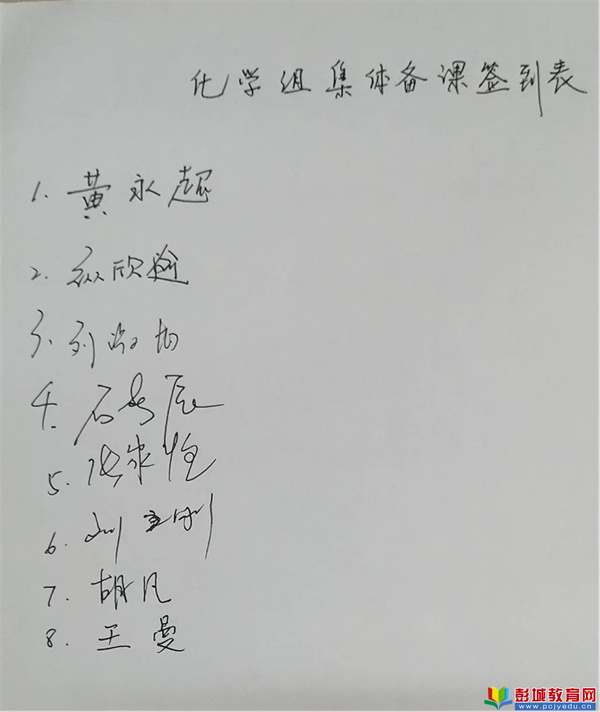 化学组集体备课签到表
1. 黄永超
2. 纵欣
3. 刘
4. 石 辰
5. 张家恒
6. 刘 刚
7. 胡凡
8. 王曼
彭城教育网
www.pcjyedu.cn